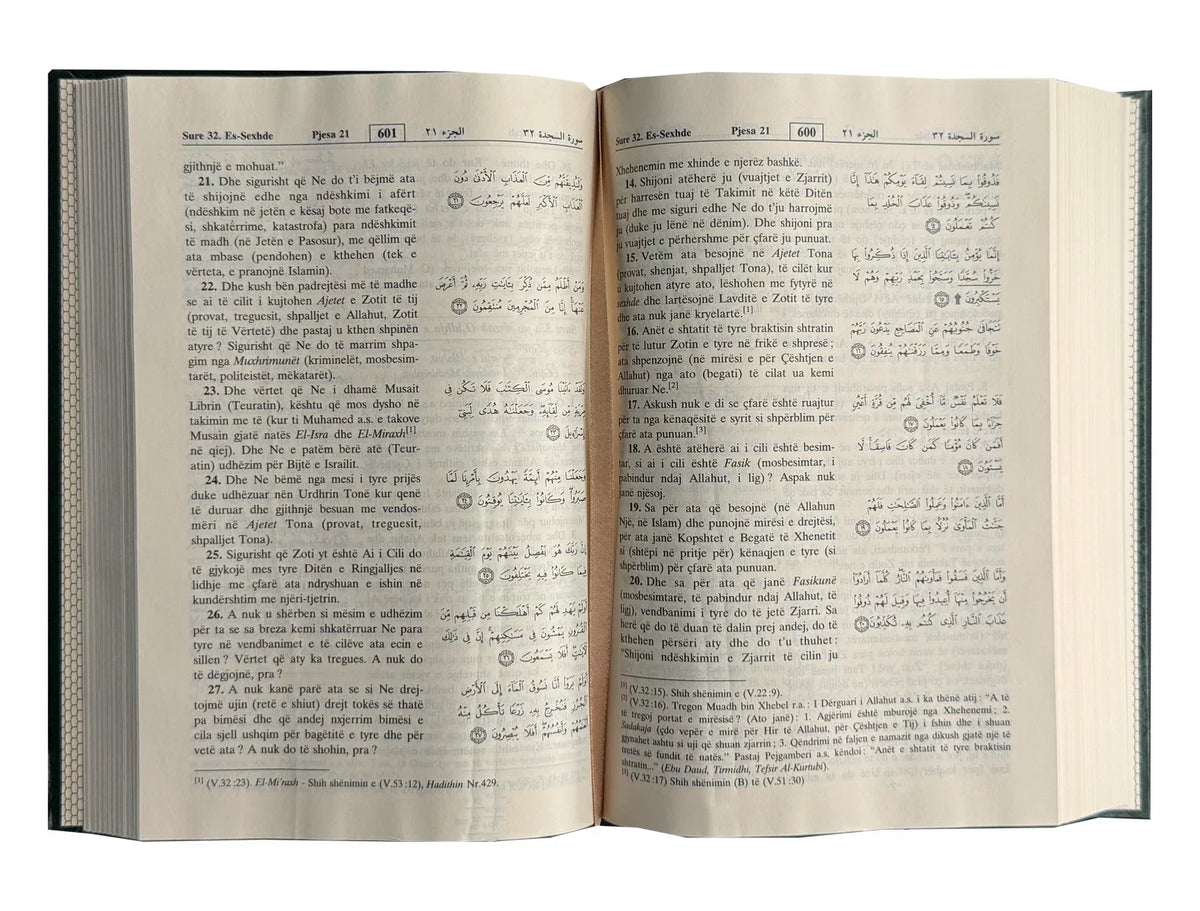 Sure 32. Es-Sexhde Pjesa 21 600 الجزء ٢١ سورة السجدة ٣٢
Xhehenemin me xhinde e njerëz bashkë.
14. Shijoni atëherë ju (vuajtjet e Zjarrit)
për harresën tuaj të Takimit në këtë Ditën
tuaj dhe me siguri edhe Ne do t’ju harrojmë
ju (duke ju lënë në dënim). Dhe shijoni pra
ju vuajtjet e përhershme për çfarë ju punuat.
15. Vetëm ata besojnë në Ajetet Tona
(provat, shenjat, shpalljet Tona), të cilët kur
u kujtohen atyre ato, lëshohen me fytyrë në
sexhde dhe lartësojnë Lavditë e Zotit të tyre
dhe ata nuk janë kryelartë.[1]
16. Anët e shtatit të tyre braktisin shtratin
për të lutur Zotin e tyre në frikë e shpresë;
ata shpenzojnë (në mirësi e për Çështjen e
Allahut) nga ato (begati) të cilat ua kemi
dhuruar Ne.[2]
17. Askush nuk e di se çfarë është ruajtur
për ta nga kënaqësitë e syrit si shpërblim për
çfarë ata punuan.[3]
18. A është atëherë ai i cili është besim-
tar, si ai i cili është Fasik (mosbesimtar, i
pabindur ndaj Allahut, i lig) ? Aspak nuk
janë njësoj.
19. Sa për ata që besojnë (në Allahun
Një, në Islam) dhe punojnë mirësi e drejtësi,
për ata janë Kopshtet e Begatë të Xhenetit
si (shtëpi në pritje për) kënaqjen e tyre (si
shpërblim) për çfarë ata punuan.
20. Dhe sa për ata që janë Fasikunë
(mosbesimtarë, të pabindur ndaj Allahut, të
ligj), vendbanimi i tyre do të jetë Zjarri. Sa
herë që do të duan të dalin prej andej, do të
kthehen përsëri aty dhe do t’u thuhet :
“Shijoni ndëshkimin e Zjarrit të cilin ju
فَذُوقُوا۟ بِمَا نَسِيتُمْ لِقَآءَ يَوْمِكُمْ هَـٰذَآ إِنَّا
نَسِينَـٰكُمْ ۖ وَذُوقُوا۟ عَذَابَ ٱلْخُلْدِ بِمَا
كُنتُمْ تَعْمَلُونَ ١٤
إِنَّمَا يُؤْمِنُ بِـَٔايَـٰتِنَا ٱلَّذِينَ إِذَا ذُكِّرُوا۟ بِهَا
خَرُّوا۟ سُجَّدًا وَسَبَّحُوا۟ بِحَمْدِ رَبِّهِمْ وَهُمْ لَا
يَسْتَكْبِرُونَ ١٥
تَتَجَافَىٰ جُنُوبُهُمْ عَنِ ٱلْمَضَاجِعِ يَدْعُونَ رَبَّهُمْ
خَوْفًا وَطَمَعًا وَمِمَّا رَزَقْنَـٰهُمْ يُنفِقُونَ ١٦
فَلَا تَعْلَمُ نَفْسٌ مَّآ أُخْفِىَ لَهُم مِّن قُرَّةِ أَعْيُنٍ
جَزَآءًۢ بِمَا كَانُوا۟ يَعْمَلُونَ ١٧
أَفَمَن كَانَ مُؤْمِنًا كَمَن كَانَ فَاسِقًا ۚ لَّا
يَسْتَوُۥنَ ١٨
أَمَّا ٱلَّذِينَ ءَامَنُوا۟ وَعَمِلُوا۟ ٱلصَّـٰلِحَـٰتِ فَلَهُمْ
جَنَّـٰتُ ٱلْمَأْوَىٰ نُزُلًۢا بِمَا كَانُوا۟ يَعْمَلُونَ ١٩
وَأَمَّا ٱلَّذِينَ فَسَقُوا۟ فَمَأْوَىٰهُمُ ٱلنَّارُ ۖ كُلَّمَآ أَرَادُوٓا۟
أَن يَخْرُجُوا۟ مِنْهَآ أُعِيدُوا۟ فِيهَا وَقِيلَ لَهُمْ ذُوقُوا۟
عَذَابَ ٱلنَّارِ ٱلَّذِى كُنتُم بِهِۦ تُكَذِّبُونَ ٢٠
[1] (V.32:15). Shih shënimin e (V.22:9).
[2] (V.32:16). Tregon Muadh bin Xhebel r.a.: I Dërguari i Allahut a.s. i ka thënë atij: “A të
të tregoj portat e mirësisë? (Ato janë): 1. Agjërimi është mburojë nga Xhehenemi; 2.
Sadakaja (çdo vepër e mirë për Hir të Allahut, për Çështjen e Tij) i fshin dhe i shuan
gjynahet ashtu si uji që shuan zjarrin; 3. Qëndrimi në faljen e namazit nga dikush gjatë një të
tretës së fundit të natës.” Pastaj Pejgamberi a.s. këndoi: “Anët e shtatit të tyre braktisin
shtratin...” (Ebu Daud, Tirmidhi, Tefsir Al-Kurtubi).
[3] (V.32:17) Shih shënimin (B) të (V.51:30)
Sure 32. Es-Sexhde Pjesa 21 601 الجزء ٢١ سورة السجدة ٣٢
gjithnjë e mohuat.”
21. Dhe sigurisht që Ne do t’i bëjmë ata
të shijojnë edhe nga ndëshkimi i afërt
(ndëshkim në jetën e kësaj bote me fatkeqë-
si, shkatërrime, katastrofa) para ndëshkimit
të madh (në Jetën e Pasosur), me qëllim që
ata mbase (pendohen) e kthehen (tek e
vërteta, e pranojnë Islamin).
22. Dhe kush bën padrejtësi më të madhe
se ai të cilit i kujtohen Ajetet e Zotit të tij
(provat, treguesit, shpalljet e Allahut, Zotit
të tij të Vërtetë) dhe pastaj u kthen shpinën
atyre ? Sigurisht që Ne do të marrim shpa-
gim nga Muxhrimunët (kriminelët, mosbesim-
tarët, politeistët, mëkatarët).
23. Dhe vërtet që Ne i dhamë Musait
Librin (Teuratin), kështu që mos dysho në
takimin me të (kur ti Muhamed a.s. e takove
Musain gjatë natës El-Isra dhe El-Miraxh[1]
në qiej). Dhe Ne e patëm bërë atë (Teur-
atin) udhëzim për Bijtë e Israilit.
24. Dhe Ne bëmë nga mesi i tyre prijës
duke udhëzuar nën Urdhrin Tonë kur qenë
të duruar dhe gjithnjë besuan me vendos-
mëri në Ajetet Tona (provat, treguesit,
shpalljet Tona).
25. Sigurisht që Zoti yt është Ai i Cili do
të gjykojë mes tyre Ditën e Ringjalljes në
lidhje me çfarë ata ndryshuan e ishin në
kundërshtim me njëri-tjetrin.
26. A nuk u shërben si mësim e udhëzim
për ta se sa breza kemi shkatërruar Ne para
tyre në vendbanimet e të cilëve ata ecin e
sillen ? Vërtet që aty ka tregues. A nuk do
të dëgjojnë, pra ?
27. A nuk kanë parë ata se si Ne drej-
tojmë ujin (retë e shiut) drejt tokës së thatë
pa bimësi dhe që andej nxjerrim bimësi e
cila sjell ushqim për bagëtitë e tyre dhe për
vetë ata ? A nuk do të shohin, pra ?
وَلَنُذِيقَنَّهُم مِّنَ ٱلْعَذَابِ ٱلْأَدْنَىٰ دُونَ
ٱلْعَذَابِ ٱلْأَكْبَرِ لَعَلَّهُمْ يَرْجِعُونَ ٢١
وَمَنْ أَظْلَمُ مِمَّن ذُكِّرَ بِـَٔايَـٰتِ رَبِّهِۦ ثُمَّ أَعْرَضَ
عَنْهَآ ۚ إِنَّا مِنَ ٱلْمُجْرِمِينَ مُنتَقِمُونَ ٢٢
وَلَقَدْ ءَاتَيْنَا مُوسَى ٱلْكِتَـٰبَ فَلَا تَكُن فِى
مِرْيَةٍ مِّن لِّقَآئِهِۦ ۖ وَجَعَلْنَـٰهُ هُدًى لِّبَنِىٓ
إِسْرَٰٓءِيلَ ٢٣
وَجَعَلْنَا مِنْهُمْ أَئِمَّةً يَهْدُونَ بِأَمْرِنَا لَمَّا
صَبَرُوا۟ ۖ وَكَانُوا۟ بِـَٔايَـٰتِنَا يُوقِنُونَ ٢٤
إِنَّ رَبَّكَ هُوَ يَفْصِلُ بَيْنَهُمْ يَوْمَ ٱلْقِيَـٰمَةِ
فِيمَا كَانُوا۟ فِيهِ يَخْتَلِفُونَ ٢٥
أَوَلَمْ يَهْدِ لَهُمْ كَمْ أَهْلَكْنَا مِن قَبْلِهِم مِّنَ
ٱلْقُرُونِ يَمْشُونَ فِى مَسَـٰكِنِهِمْ ۚ إِنَّ فِى ذَٰلِكَ
لَـَٔايَـٰتٍ ۖ أَفَلَا يَسْمَعُونَ ٢٦
أَوَلَمْ يَرَوْا۟ أَنَّا نَسُوقُ ٱلْمَآءَ إِلَى ٱلْأَرْضِ
ٱلْجُرُزِ فَنُخْرِجُ بِهِۦ زَرْعًا تَأْكُلُ مِنْهُ
أَنْعَـٰمُهُمْ وَأَنفُسُهُمْ ۖ أَفَلَا يُبْصِرُونَ ٢٧
[1] (V.32:23). El-Mi’raxh - Shih shënimin e (V.53:12), Hadithin Nr.429.